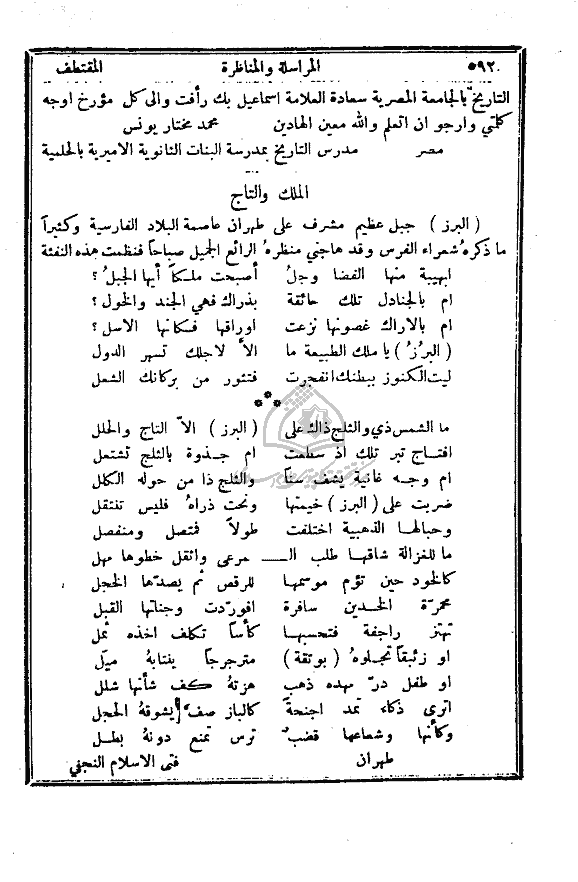 ٥٩٢ المراسلة والمناظرة المقتطف
التاريخ بالجامعة المصرية سعادة العلامة اسماعيل بك رأفت والى كل مؤرخ اوجه
كلمتي وارجو ان اتعلم والله معين الهادين محمد مختار يونس
مصر مدرس التاريخ بمدرسة البنات الثانوية الاميرية بالحلمية
الملك والتاج
( البرز ) جبل عظيم مشرف على طهران عاصمة البلاد الفارسية وكثيراً
ما ذكره شعراء الفرس وقد هاجني منظره الرائع الجميل صباحاً فنظمت هذه النفثة
ابهيبة منها الفضا وجل أصبحت ملكاً أيها الجبل ؟
ام بالجنادل تلك حائقة بذراك فهي الجند والخول ؟
ام بالاراك غصونها نزعت اوراقها فكأنها الاسل ؟
( البرز ) يا ملك الطبيعة ما الا لاجلك تسهر الدول
ليت الكنوز ببطنك انفجرت فتثور من بركانك الشعل
***
ما الشمس ذي والثلج ذاك على ( البرز ) الاّ التاج والحلل
افتاج تبر تلك اذ سطعت ام جذوة بالثلج تشتعل
ام وجه غانية يشف سناً والثلج ذا من حوله الكلل
ضربت على ( البرز ) خيمتها ونحت ذراه فليس تنتقل
وحبالها الذهبية اختلفت طولاً فمتصل ومنفصل
ما للغزالة شاقها طلب الـ ـمرعى واثقل خطوها مهل
كالخود حين تؤم موسمها للرقص ثم يصدّها الخجل
محمرّة الخدين سافرة افورّدت وجناتها القبل
تهتز راجفة فتحسبها كأساً تكلف اخذه ثمل
او زئبقاً تجلوه ( بوتقة ) مترجرجاً ينتابه ميل
او طفل درّ مهده ذهب هزته كف شأنها شلل
اترى ذكاء تمد اجنحة كالباز صف يشوقه الحجل
وكأنها وشعاعها قضب ترس تمنع دونه بطل
طهران فتى الاسلام النجفي